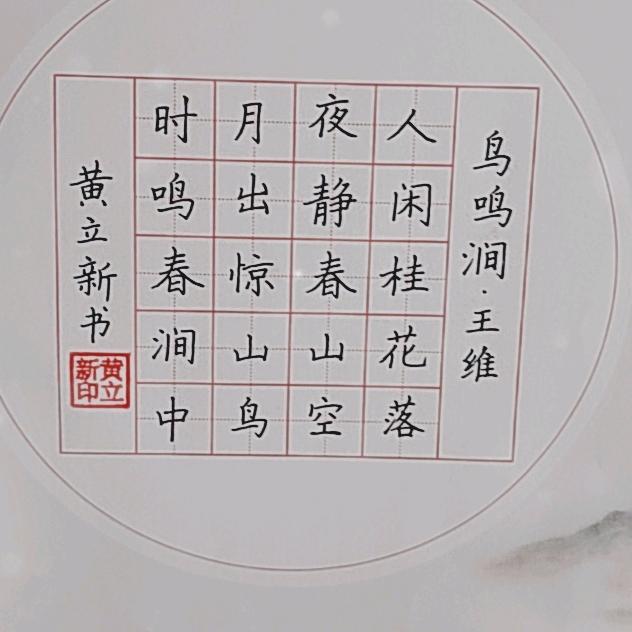 鸟鸣涧·王维
人闲桂花落
夜静春山空
月出惊山鸟
时鸣春涧中
黄立新书
黄立新印